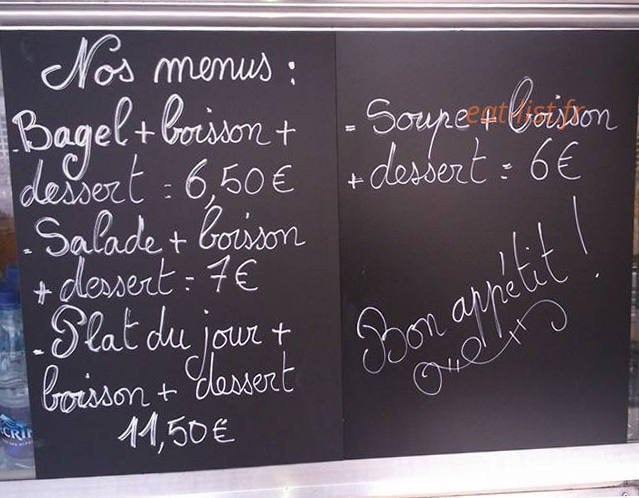 Nos menus :
- Bagel + boisson +
dessert = 6,50 €
- Salade + boisson
+ dessert = 7 €
- Plat du jour +
boisson + dessert
11,50 €
- Soupe + boisson
+ dessert = 6 €
Bon appétit !
eat-list.fr